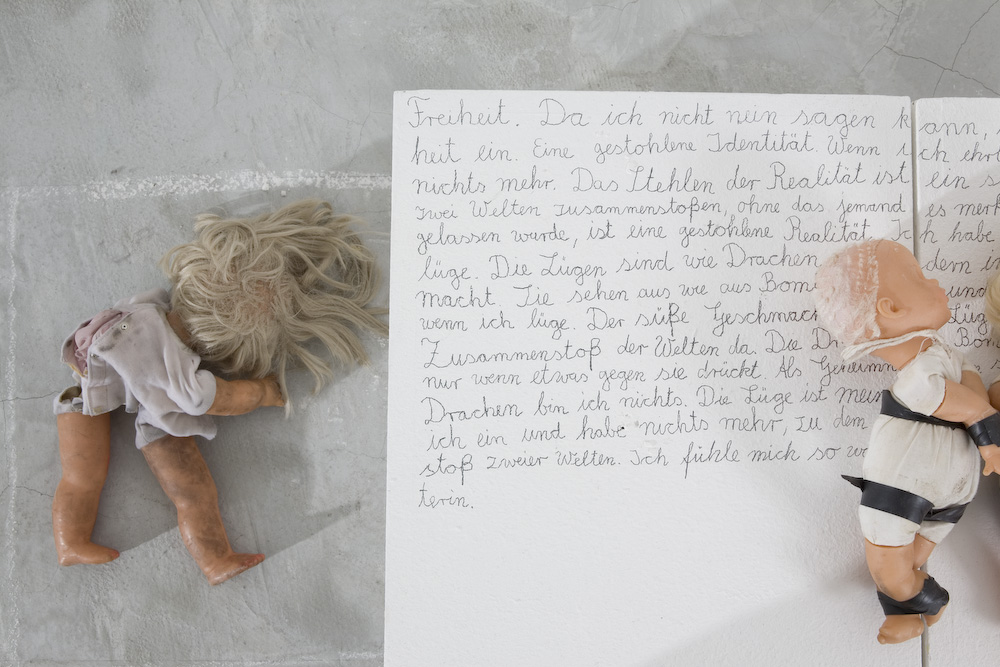 Freiheit. Da ich nicht nein sagen kann,
heit ein. Eine gestohlene Identität. Wenn ich ehrl
nichts mehr. Das Stehlen der Realität ist ein s
zwei Welten zusammenstoßen, ohne das jemand es merk
gelassen wurde, ist eine gestohlene Realität. Ich habe
lüge. Die Lügen sind wie Drachen dem in
macht. Sie sehen aus wie aus Bom und
wenn ich lüge. Der süße Geschmack Lüg
Zusammenstoß der Welten da. Die Dr Bom
nur wenn etwas gegen sie drückt. Als Geheimn
Drachen bin ich nichts. Die Lüge ist mein
ich ein und habe nichts mehr, zu dem
stoß zweier Welten. Ich fühle mich so
terin.